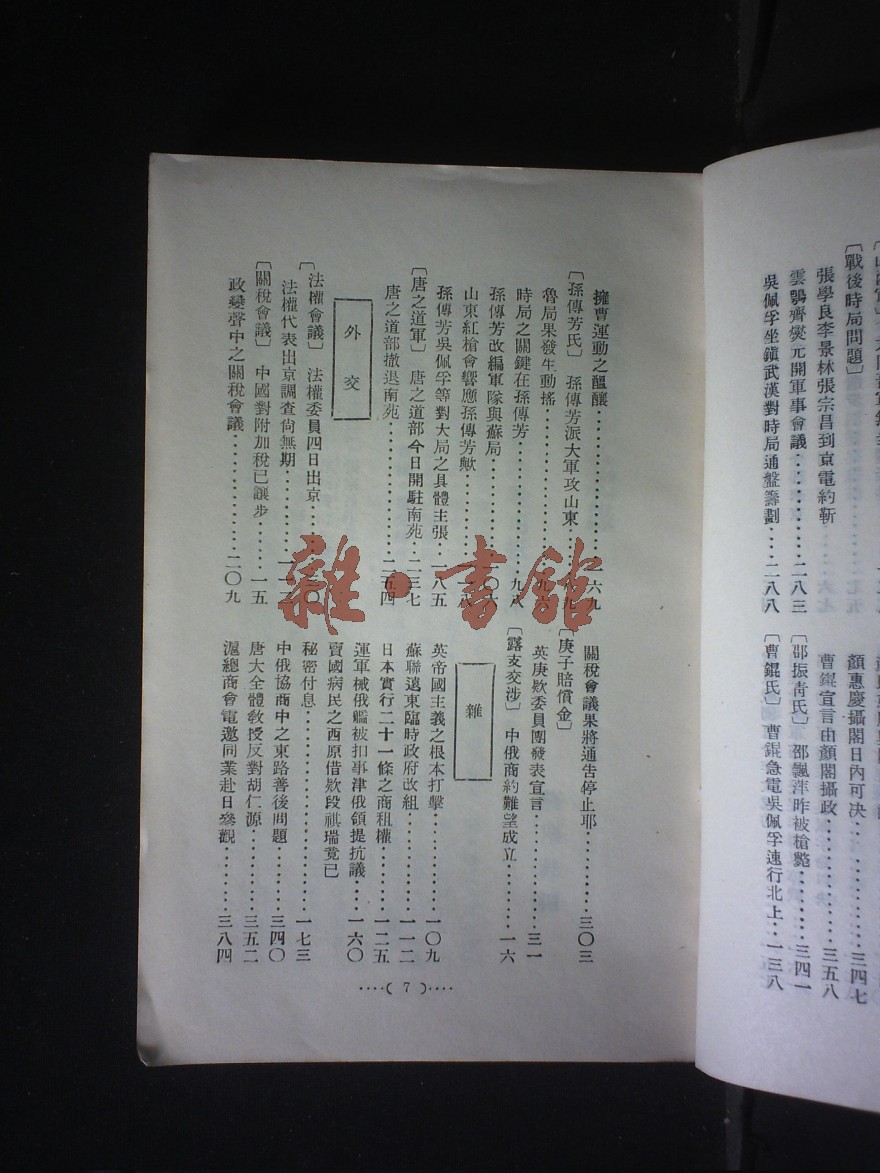 戰後時局問題〕
張學良李景林張宗昌到京電約靳
雲鵬齊燮元開軍事會議‥‥二八三
吳佩孚坐鎮武漢對時局通盤籌劃‥‥二八八
顏惠慶攝閣日內可決‥‥三四七
曹錕宣言由顏閣攝政‥‥三五八
〔邵振青氏〕 邵飄萍昨被槍斃‥‥三四一
〔曹錕氏〕 曹錕急電吳佩孚速行北上‥‥一三八
擁曹運動之醞釀‥‥六九
〔孫傳芳氏〕 孫傳芳派大軍攻山東
魯局果發生動搖
時局之關鍵在孫傳芳‥‥九八
孫傳芳改編軍隊與蘇局
山東紅槍會響應孫傳芳歟
孫傳芳吳佩孚等對大局之具體主張‥‥一八五
〔唐之道軍〕 唐之道部今日開駐南苑‥‥二三七
唐之道部撤退南苑‥‥二五四
外交
〔法權會議〕 法權委員四日出京
法權代表出京調查尙無期
〔關稅會議〕 中國對附加稅已讓步‥‥一五
政變聲中之關稅會議‥‥二〇九
關稅會議果將通告停止耶‥‥三〇三
〔庚子賠償金〕
英庚欵委員團發表宣言‥‥三一
〔露支交涉〕 中俄商約難望成立‥‥一六
雜
英帝國主義之根本打擊‥‥一〇九
蘇聯遠東臨時政府改組‥‥一一二
日本實行二十一條之商租權‥‥一二五
運軍械俄艦被扣事津俄領提抗議‥‥一六〇
賣國病民之西原借欵段祺瑞竟已
秘密付息‥‥一七三
中俄協商中之東路善後問題‥‥三四〇
唐大全體敎授反對胡仁源‥‥三五二
滬總商會電邀同業赴日參觀‥‥三八四
‥‥( 7 )‥‥
雜·書館